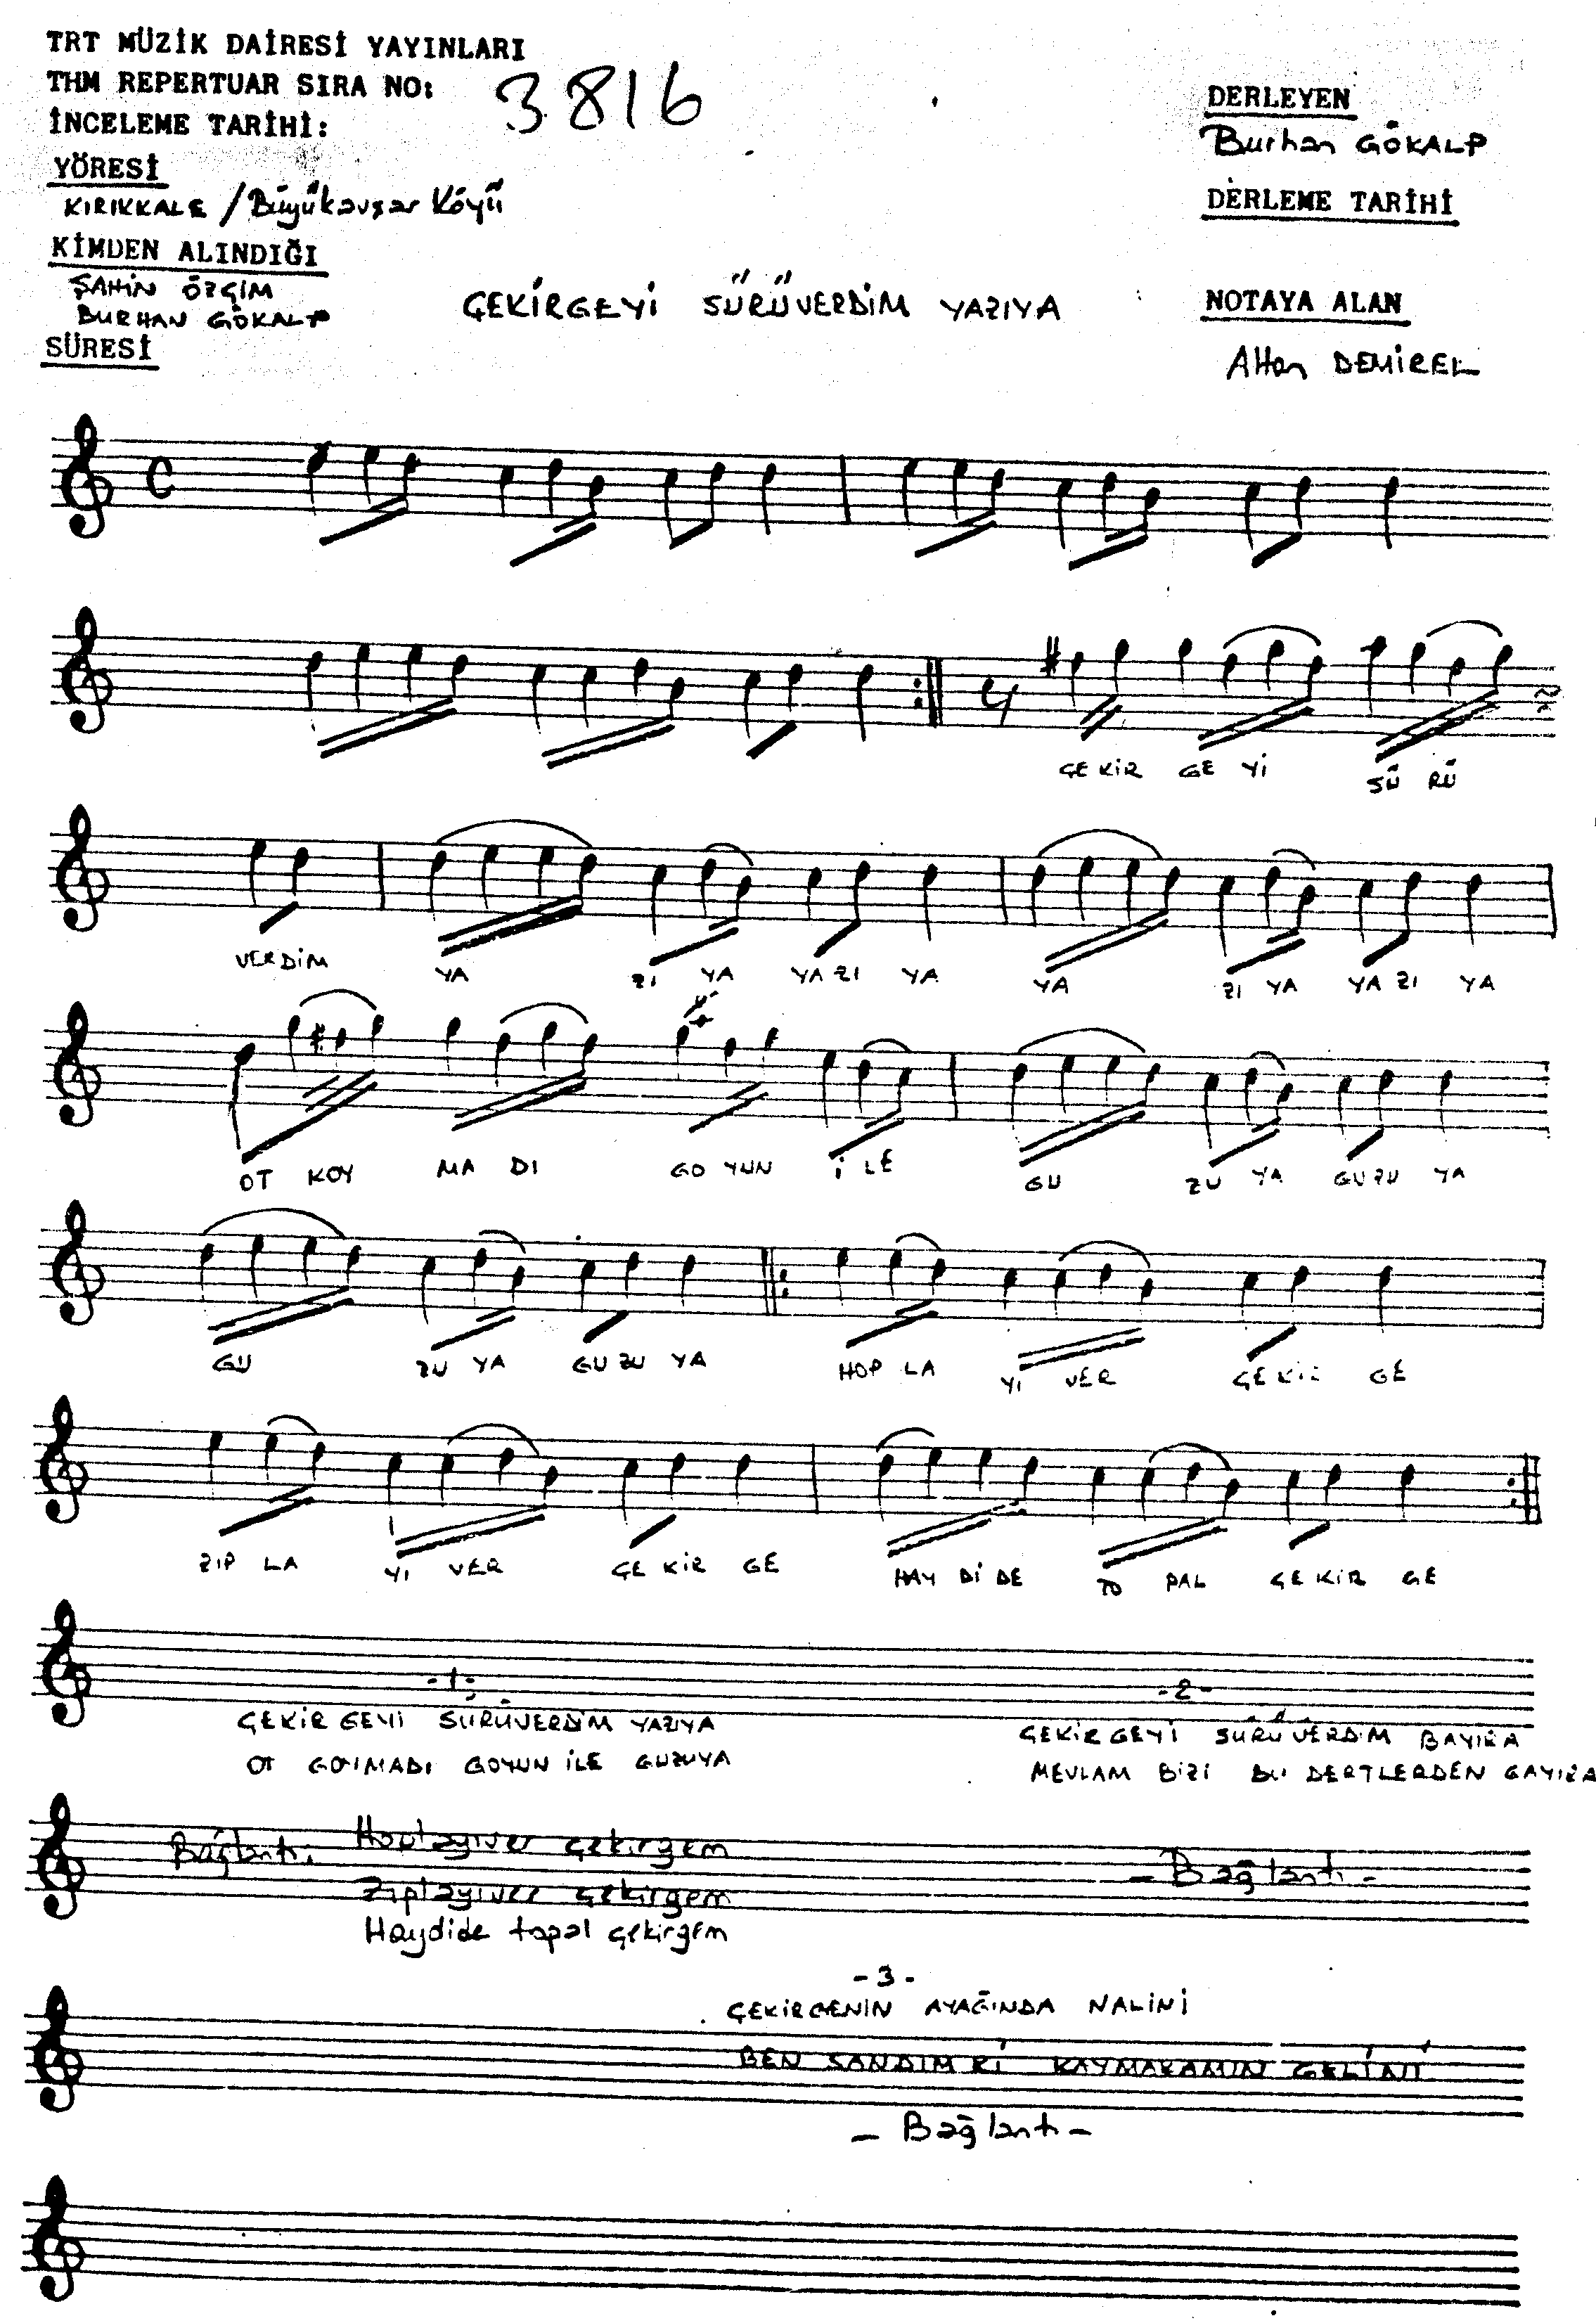 TRT MÜZİK DAİRESİ YAYINLARI
THM REPERTUAR SIRA NO: 3816
İNCELEME TARİHİ:
YÖRESİ
KIRIKKALE / Büyükavşar Köyü
KİMDEN ALINDIĞI
ŞAHİN ÖZÇİM
BURHAN GÖKALP
SÜRESİ
DERLEYEN
Burhan GÖKALP
DERLEME TARİHİ
NOTAYA ALAN
Altan DEMİREL
ÇEKİRGEYİ SÜRÜVERDİM YAZIYA
ÇE KİR GE Yİ SÜ RÜ
VERDİM YA ZI YA YA ZI YA YA ZI YA YA ZI YA
OT KOY MA DI GO YUN İ LE GU ZU YA GU ZU YA
GU ZU YA GU ZU YA HOP LA YI VER ÇE KİR GE
ZIP LA YI VER ÇE KİR GE HAY Dİ DE TO PAL ÇE KİR GE
-1-
ÇEKİRGEYİ SÜRÜVERDİM YAZIYA
OT GOYMADI GOYUN İLE GUZUYA
Bağlantı: Hoplayıver çekirgem
Zıplayıver çekirgem
Haydide topal çekirgem
-2-
ÇEKİRGEYİ SÜRÜVERDİM BAYIRA
MEVLAM BİZİ BU DERTLERDEN GAYIRA
- Bağlantı -
-3-
ÇEKİRGENİN AYAĞINDA NALİNİ
BEN SANDIM Kİ KAYMAKAMIN GELİNİ
- Bağlantı -